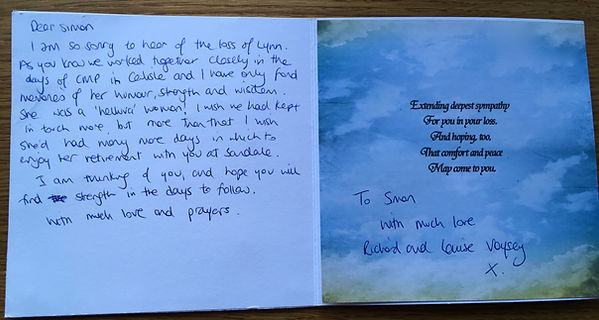 Dear Simon
I am so sorry to hear of the loss of Lynn.
As you know we worked together closely in the
days of CMP in Carlisle and I have only fond
memories of her humour, strength and wisdom.
She was a 'helluva' woman! I wish we had kept
in touch more, but more than that I wish
she'd had many more days in which to
enjoy her retirement with you at Sandale.
I am thinking of you, and hope you will
find strength in the days to follow.
With much love and prayers.
Extending deepest sympathy
For you in your loss.
And hoping, too,
That comfort and peace
May come to you.
To Simon
With much love
Richard and Louise Voysey
X.